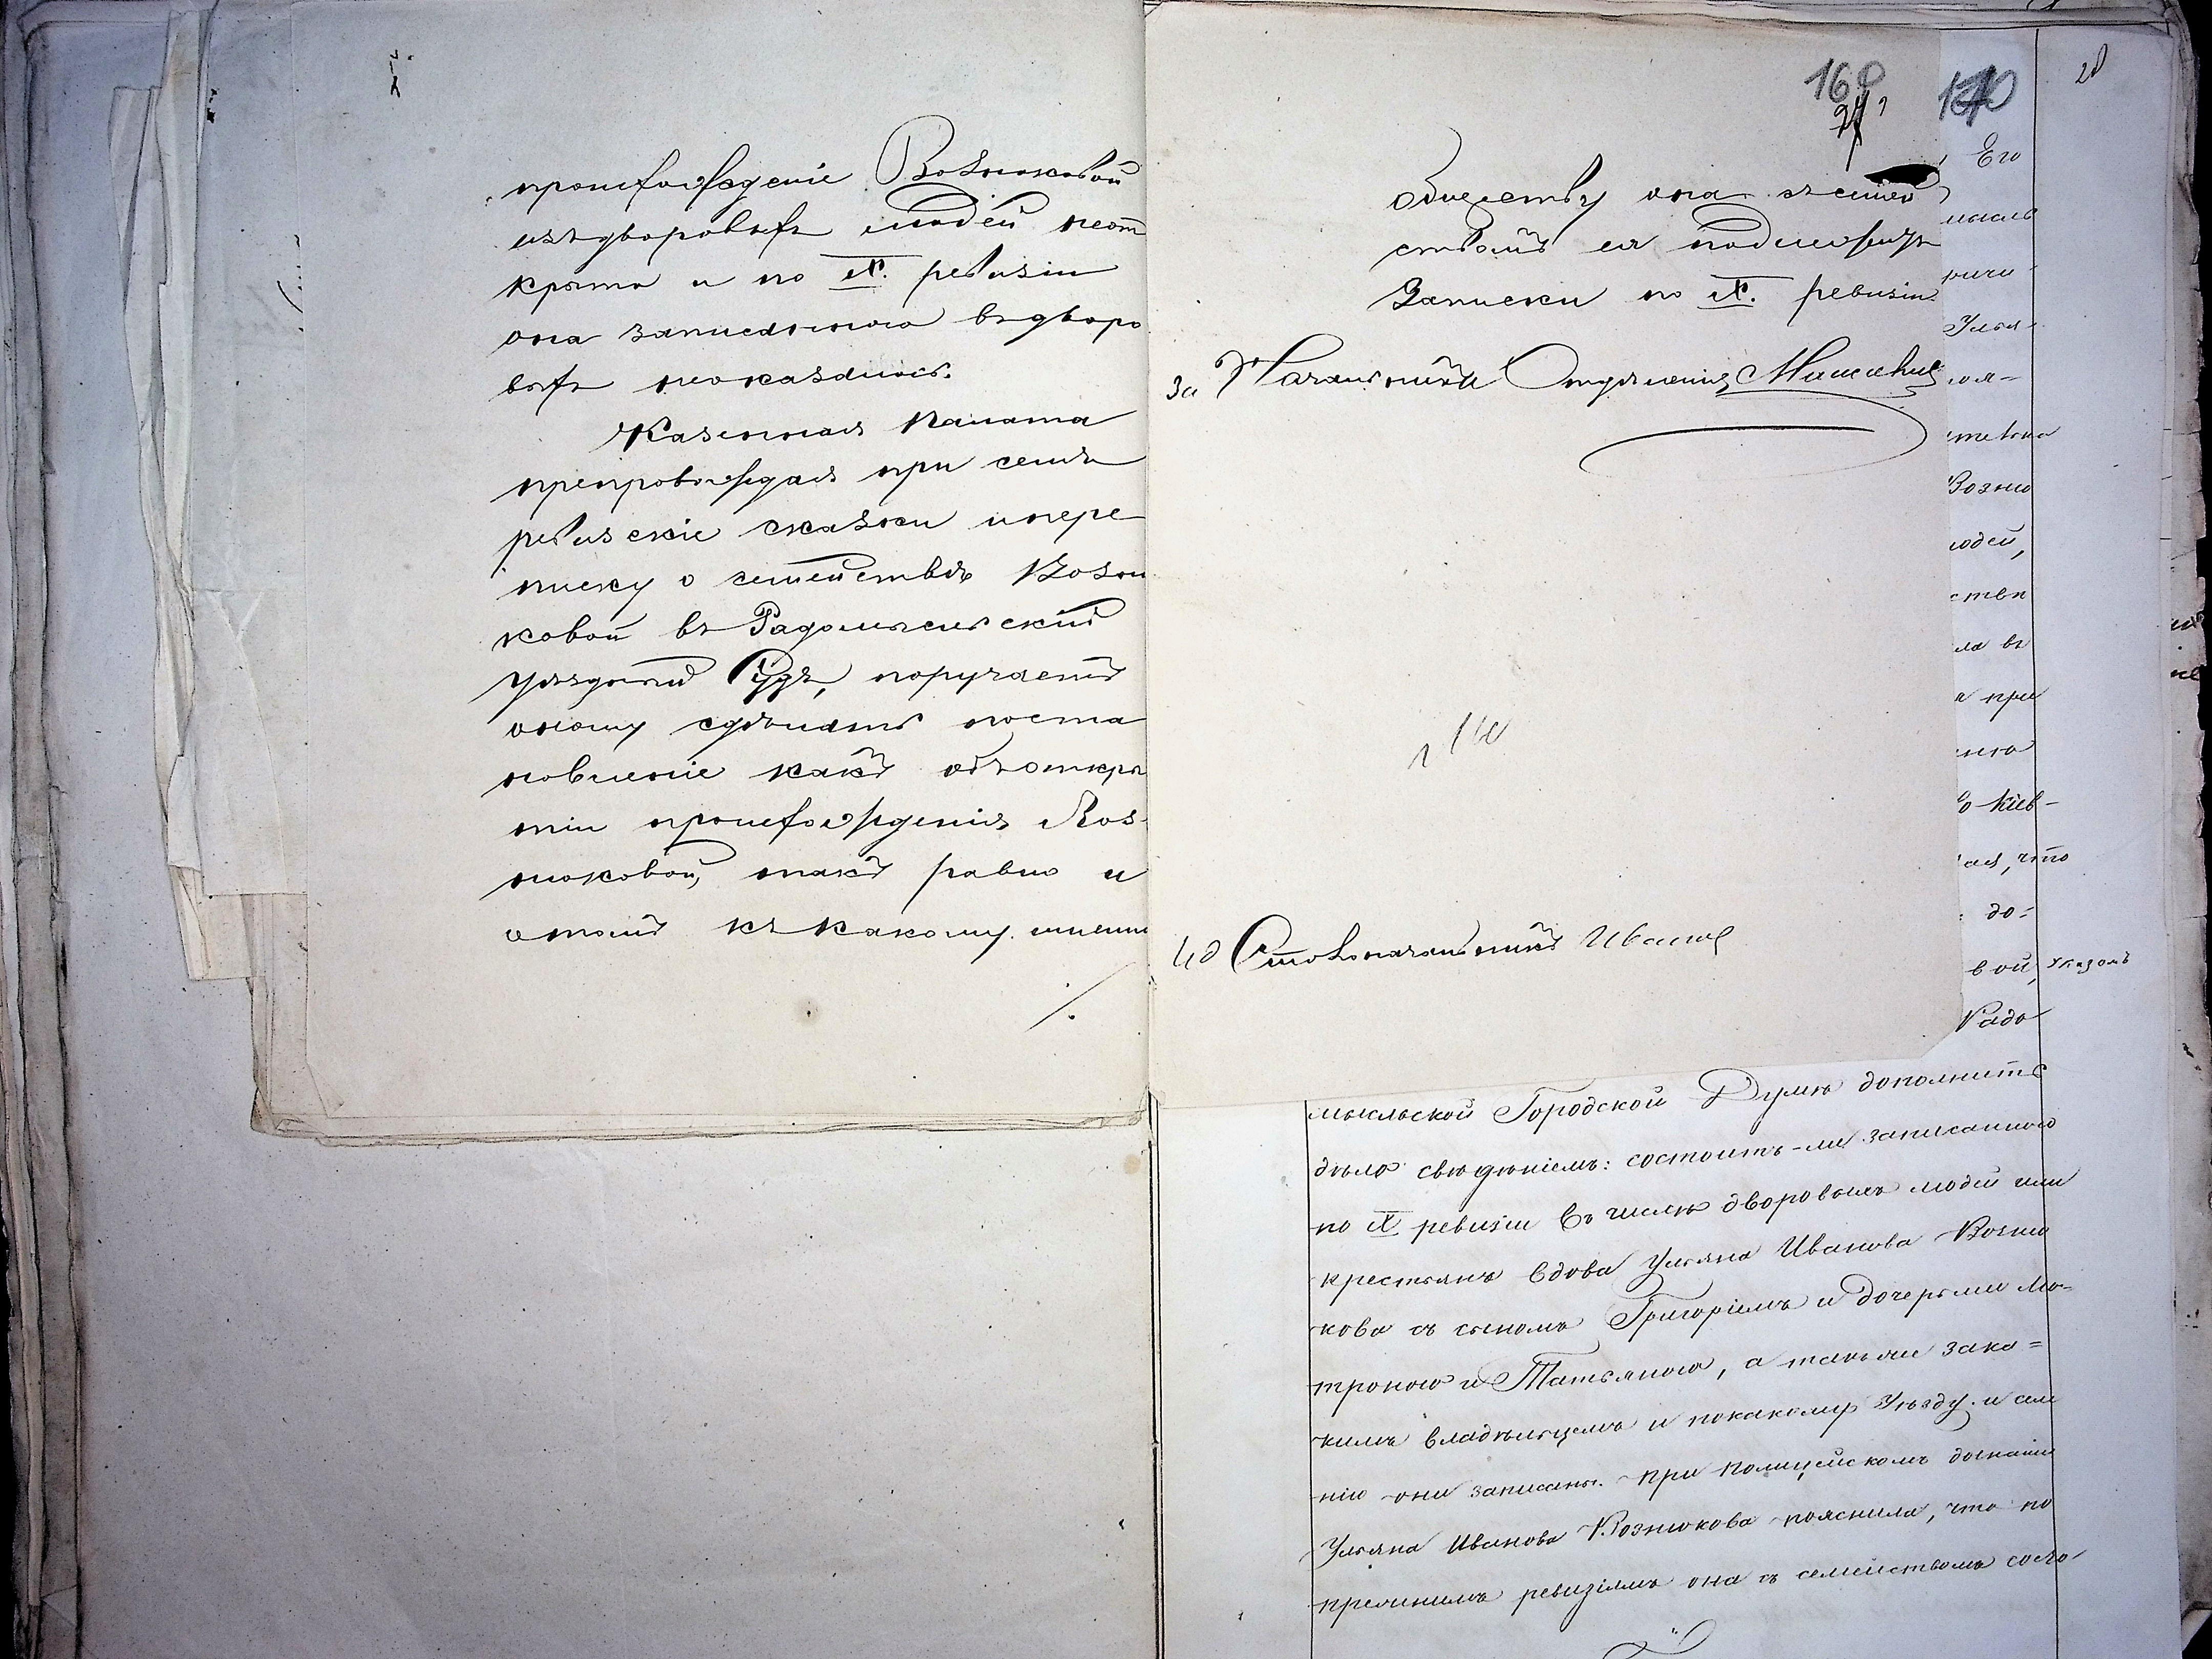 происхожденіе Вознюковой
изъ дворовыхъ людей неот
крыто и по IX. ревизіи
она записанною въ дворо
выхъ не оказалась.
Казенная Палата
препровождая при семъ
ревизскіе сказки и пере
писку о семействѣ Возню
ковой въ Радомысльскій
Уѣздный Судъ, поручаетъ
оному сдѣлать поста
новленіе какъ объ откры
тіи происхожденія Воз-
нюковой, такъ равно и
о томъ къ какому имѣнію
/.
168
27
обществу она съ семей
ствомъ ея подлежитъ
Записки по IX. ревизіи
За Начальника Отдѣленія
Ид Столоначальника Иванов
170
28
Его
Улья-
Возню
юдей,
ства
ла въ
а при
о Кіев-
ая, что
до-
вой, Указомъ
Радо
мысльской Городской Думѣ дополнить
дѣло свѣдѣніемъ: состоитъ-ли записанною
по IX ревизіи въ числѣ дворовыхъ людей или
крестьянъ вдова Ульяна Иванова Возню
кова съ сыномъ Григоріемъ и дочерьми Мо-
троною и Татьяною, а также за ка=
кимъ владѣльцемъ и по какому Уѣзду и имѣ
нію они записаны. При Полицейскомъ дознаніи
Ульяна Иванова Вознюкова пояснила, что по
прежнимъ ревизіямъ она съ семействомъ состо-